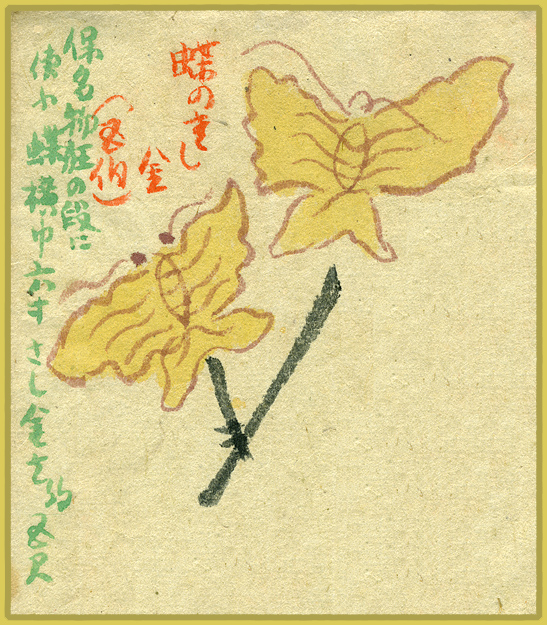 蝶のさし
金
保名物狂の段に
使ふ蝶横巾六寸さし金 五尺